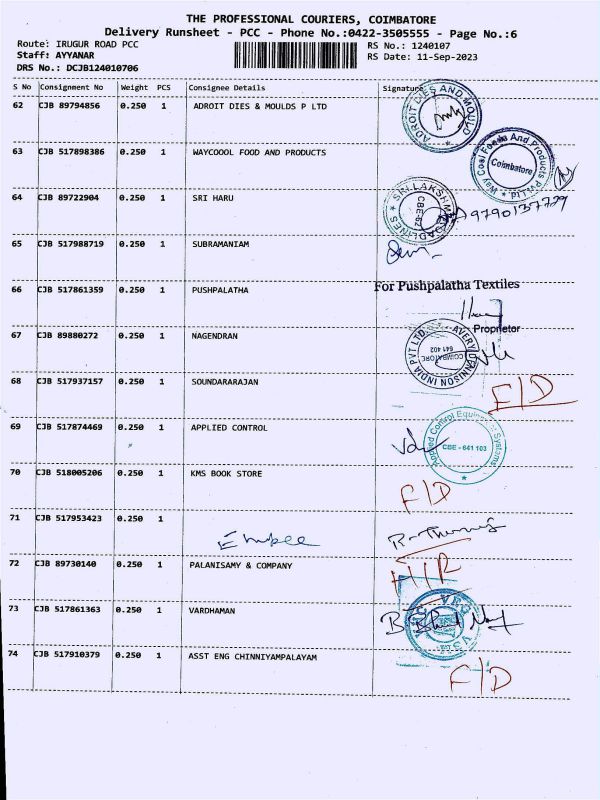 THE PROFESSIONAL COURIERS, COIMBATORE
Delivery Runsheet - PCC - Phone No.:0422-3505555 - Page No.:6
Route: IRUGUR ROAD PCC RS No.: 1240107
Staff: AYYANAR RS Date: 11-Sep-2023
DRS No.: DCJB124010706
S No Consignment No Weight PCS Consignee Details Signature
62 CJB 89794856 0.250 1 ADROIT DIES & MOULDS P LTD
ADROIT DIES AND MOULD
63 CJB 517898386 0.250 1 WAYCOOOL FOOD AND PRODUCTS
Way Cool Foods And Products P
Coimbatore
64 CJB 89722904 0.250 1 SRI HARU
SRI LAKSHMI
CBE-62
9790137729
65 CJB 517988719 0.250 1 SUBRAMANIAM
66 CJB 517861359 0.250 1 PUSHPALATHA
For Pushpalatha Textiles
Proprietor
67 CJB 89880272 0.250 1 NAGENDRAN
AVERY DENNISON INDIA PVT LTD.
COIMBATORE
641 402
68 CJB 517937157 0.250 1 SOUNDARARAJAN
F/D
69 CJB 517874469 0.250 1 APPLIED CONTROL
Applied Control Equipment Systems
CBE - 641 103
70 CJB 518005206 0.250 1 KMS BOOK STORE
F/D
71 CJB 517953423 0.250 1
72 CJB 89730140 0.250 1 PALANISAMY & COMPANY
73 CJB 517861363 0.250 1 VARDHAMAN
74 CJB 517910379 0.250 1 ASST ENG CHINNIYAMPALAYAM
F/D